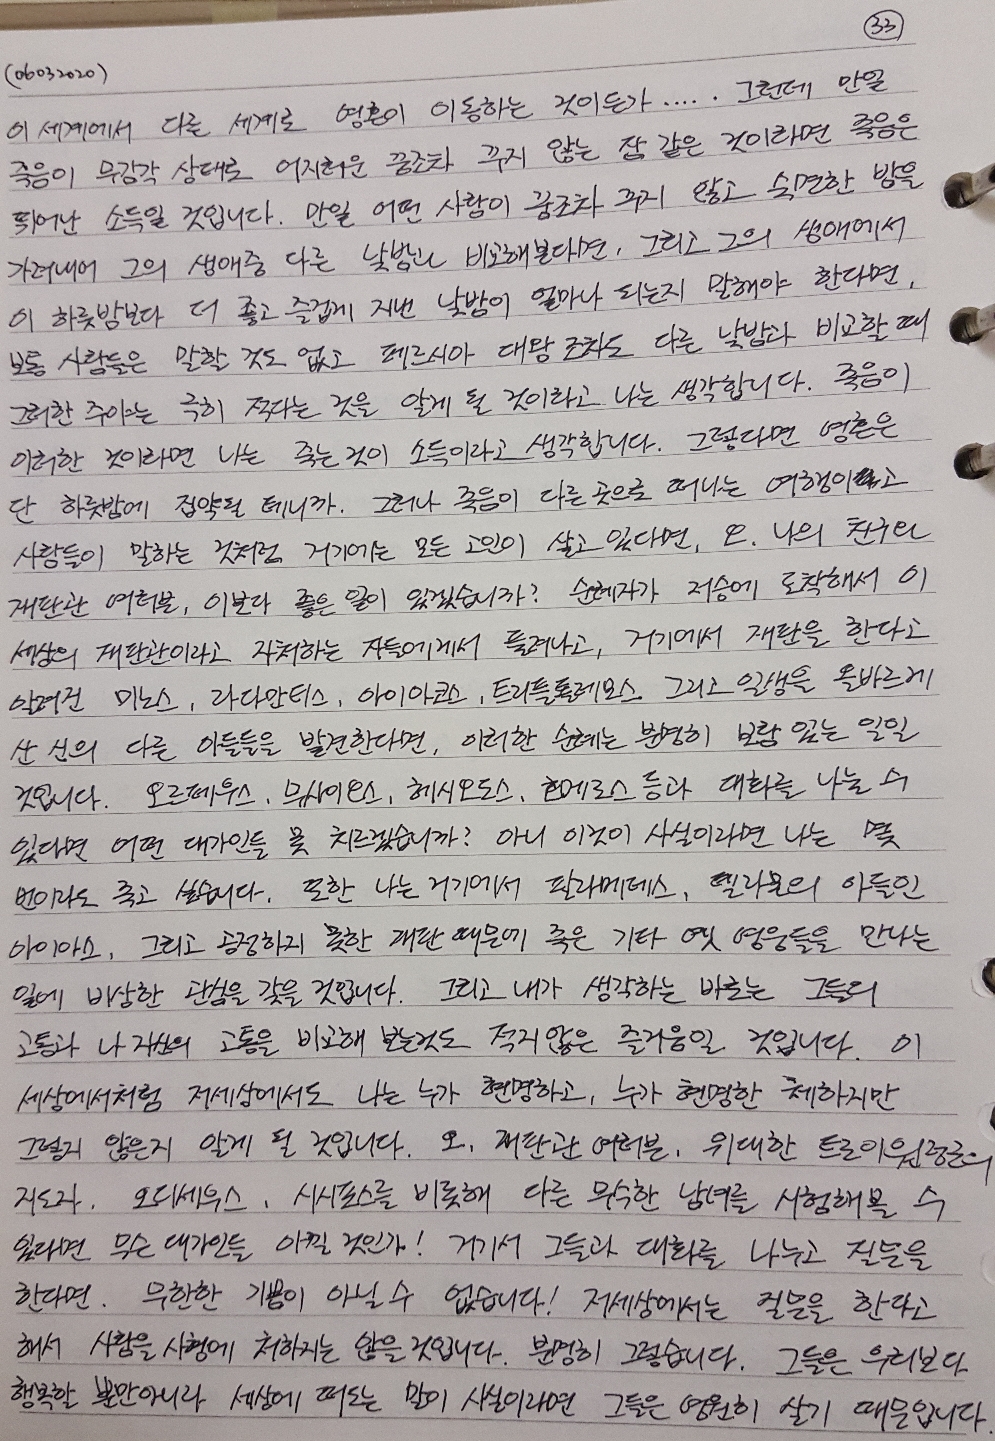 33
(06032020)
이 세계에서 다른 세계로 영혼이 이동하는 것이든가..... 그런데 만일
죽음이 무감각 상태로 어지러운 꿈조차 꾸지 않는 잠 같은 것이라면 죽음은
뛰어난 소득일 것입니다. 만일 어떤 사람이 꿈조차 꾸지 않고 숙면한 밤을
가려내어 그의 생애중 다른 낮밤과 비교해본다면, 그리고 그의 생애에서
이 하룻밤보다 더 좋고 즐겁게 지낸 낮밤이 얼마나 되는지 말해야 한다면,
보통 사람들은 말할 것도 없고 페르시아 대왕 조차도 다른 낮밤과 비교할 때
그러한 주야는 극히 적다는 것을 알게 될 것이라고 나는 생각합니다. 죽음이
이러한 것이라면 나는 죽는 것이 소득이라고 생각합니다. 그렇다면 영혼은
단 하룻밤에 집약될 테니까. 그러나 죽음이 다른 곳으로 떠나는 여행이라고
사람들이 말하는 것처럼, 거기에는 모든 고인이 살고 있다면, 오. 나의 친구인
재판관 여러분, 이보다 좋은 일이 있겠습니까? 순례자가 저승에 도착해서 이
세상의 재판관이라고 자처하는 자들에게서 풀려나고, 거기에서 재판을 한다고
알려진 미노스, 라다만티스, 아이아코스, 트리플톨레모스 그리고 일생을 올바르게
산 신의 다른 아들들을 발견한다면, 이러한 순례는 분명히 보람 있는 일일
것입니다. 오르페우스, 무사이오스, 헤시오도스, 호메로스 등과 대화를 나눌 수
있다면 어떤 대가인들 못 치르겠습니까? 아니 이것이 사실이라면 나는 몇
번이라도 죽고 싶습니다. 또한 나는 거기에서 팔라메데스, 텔라몬의 아들인
아이아스, 그리고 공정하지 못한 재판 때문에 죽은 기타 옛 영웅들을 만나는
일에 비상한 관심을 갖을 것입니다. 그리고 내가 생각하는 바로는 그들의
고통과 나 자신의 고통을 비교해 보는것도 적지않은 즐거움일 것입니다. 이
세상에서처럼 저세상에서도 나는 누가 현명하고, 누가 현명한 체하지만
그렇지 않은지 알게 될 것입니다. 오, 재판관 여러분, 위대한 트로이원정군의
지도자. 오디세우스, 시시포스를 비롯해 다른 무수한 남녀를 시험해볼 수
있다면 무슨 대가인들 아낄 것인가! 거기서 그들과 대화를 나누고 질문을
한다면. 무한한 기쁨이 아닐 수 없습니다! 저세상에서는 질문을 한다고
해서 사람을 사형에 처하지는 않을 것입니다. 분명히 그렇습니다. 그들은 우리보다
행복할 뿐만아니라 세상에 떠도는 말이 사실이라면 그들은 영원히 살기 때문입니다.